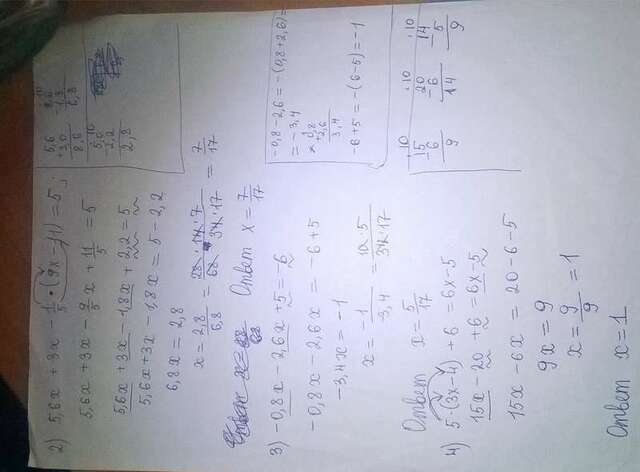 2) 5,6x + 3x - 1/5 · (9x - 11) = 5;
5,6x + 3x - 9/5 x + 11/5 = 5
5,6x + 3x - 1,8x + 2,2 = 5
5,6x + 3x - 1,8x = 5 - 2,2
6,8x = 2,8
x = 2,8/6,8 = 28 · 14 · 7/68 · 34 · 17 = 7/17
Ответ x = 7/17
5,6
+3,0
8,6
10
8,6
-1,8
6,8
10
5,0
2,2
2,8
3) -0,8x - 2,6x + 5 = -6
-0,8x - 2,6x = -6 + 5
-3,4x = -1
x = -1/-3,4 = 10 · 5/34 · 17
Ответ x = 5/17
-0,8 - 2,6 = -(0,8 + 2,6) =
= -3,4
1
+0,8
2,6
3,4
-6 + 5 = -(6 - 5) = -1
4) 5 · (3x - 4) + 6 = 6x - 5
15x - 20 + 6 = 6x - 5
15x - 6x = 20 - 6 - 5
9x = 9
x = 9/9 = 1
Ответ x = 1
10
15
6
9
10
20
-6
14
10
14
-5
9